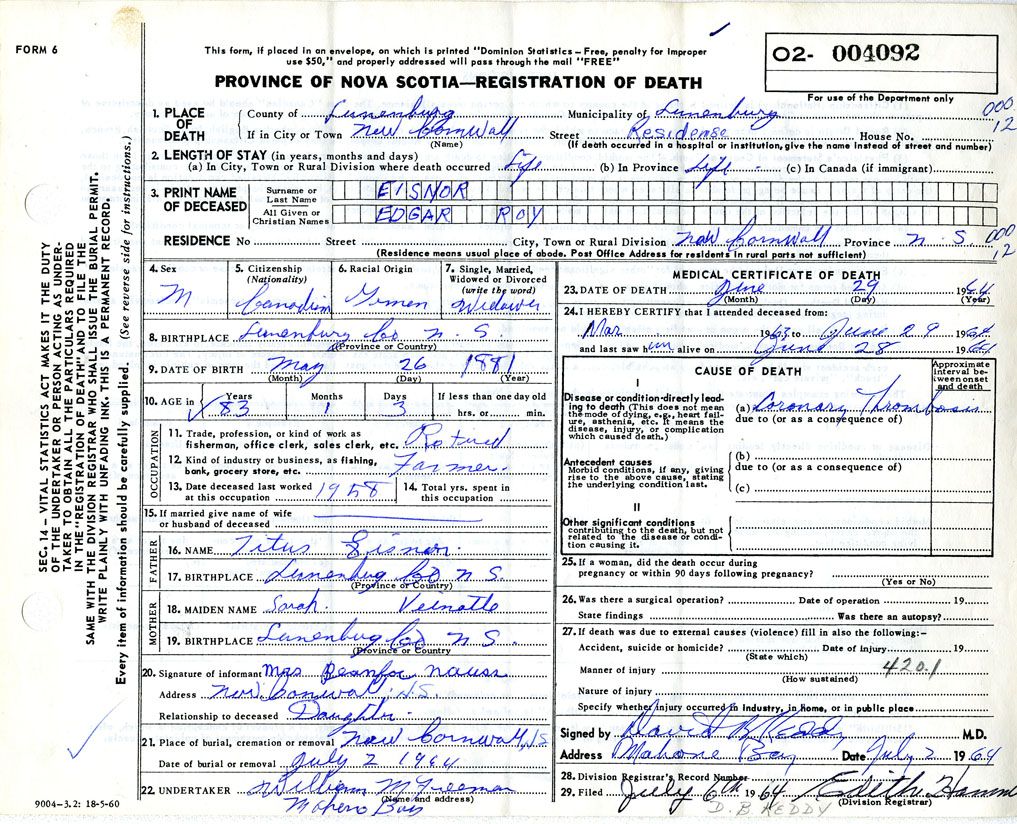 FORM 6
This form, if placed in an envelope, on which is printed "Dominion Statistics – Free, penalty for improper
use $50," and properly addressed will pass through the mail "FREE"
O2- 004092
PROVINCE OF NOVA SCOTIA—REGISTRATION OF DEATH
For use of the Department only
000
12
1. PLACE OF DEATH County of Lunenburg Municipality of Lunenburg
If in City or Town New Cornwall Street Residense House No.
(Name) (If death occurred in a hospital or institution, give the name instead of street and number)
2. LENGTH OF STAY (in years, months and days)
(a) In City, Town or Rural Division where death occurred Life (b) In Province Life (c) In Canada (if immigrant)
3. PRINT NAME OF DECEASED
Surname or Last Name EISNOR
All Given or Christian Names EDGAR ROY
RESIDENCE No Street City, Town or Rural Division New Cornwall Province N.S 000
(Residence means usual place of abode. Post Office Address for residents in rural parts not sufficient) 12
4. Sex M
5. Citizenship (Nationality) Canadian
6. Racial Origin
7. Single, Married, Widowed or Divorced (write the word) Widower
8. BIRTHPLACE Lunenburg Co N.S
(Province or Country)
9. DATE OF BIRTH May 26 1881
(Month) (Day) (Year)
10. AGE in Years 83 Months 1 Days 3 If less than one day old hrs. or min.
OCCUPATION
11. Trade, profession, or kind of work as fisherman, office clerk, sales clerk, etc. Retired
12. Kind of industry or business, as fishing, bank, grocery store, etc. Farmer
13. Date deceased last worked at this occupation 1958 14. Total yrs. spent in this occupation
15. If married give name of wife or husband of deceased
FATHER
16. NAME Titus Eisnor
17. BIRTHPLACE Lunenburg Co N.S.
(Province or Country)
MOTHER
18. MAIDEN NAME Sarah
19. BIRTHPLACE Lunenburg Co N.S.
(Province or Country
20. Signature of informant Mrs
Address New Cornwall N.S.
Relationship to deceased Daughter
21. Place of burial, cremation or removal New Cornwall, N.S
Date of burial or removal July 2 1964
22. UNDERTAKER William M Freeman
(Name and address)
Mahone Bay
9004-3.2: 18-5-60
MEDICAL CERTIFICATE OF DEATH
23. DATE OF DEATH June 29 1964
(Month) (Day) (Year)
24. I HEREBY CERTIFY that I attended deceased from:
Mar 1963 to June 29 1964
and last saw him alive on June 28 1964
CAUSE OF DEATH
Approximate interval between onset and death
I
Disease or condition-directly leading to death (This does not mean the mode of dying, e.g., heart failure, asthenia, etc. It means the disease, injury, or complication which caused death.)
(a) Coronary Thrombosis
due to (or as a consequence of)
Antecedent causes
Morbid conditions, if any, giving rise to the above cause, stating the underlying condition last.
(b)
due to (or as a consequence of)
(c)
II
Other significant conditions
contributing to the death, but not related to the disease or condition causing it.
25. If a woman, did the death occur during pregnancy or within 90 days following pregnancy?
(Yes or No)
26. Was there a surgical operation? Date of operation 19
State findings Was there an autopsy?
27. If death was due to external causes (violence) fill in also the following:–
Accident, suicide or homicide? Date of injury 19
(State which)
Manner of injury 420.1
(How sustained)
Nature of injury
Specify whether injury occurred in Industry, in Home, or in public place
Signed by David B Reddy M.D.
Address Mahone Bay Date July 2 1964
28. Division Registrar's Record Number
29. Filed July 6th 1964 Edith
(Division Registrar)
D. B. REDDY
SEC. 14 – VITAL STATISTICS ACT MAKES IT THE DUTY
OF THE UNDERTAKER OR PERSON ACTING AS UNDER-
TAKER TO OBTAIN ALL THE PARTICULARS REQUIRED
IN THE "REGISTRATION OF DEATH" AND TO FILE THE
SAME WITH THE DIVISION REGISTRAR WHO SHALL ISSUE THE BURIAL PERMIT.
WRITE PLAINLY WITH UNFADING INK. THIS IS A PERMANENT RECORD.
Every item of information should be carefully supplied. (See reverse side for instructions.)